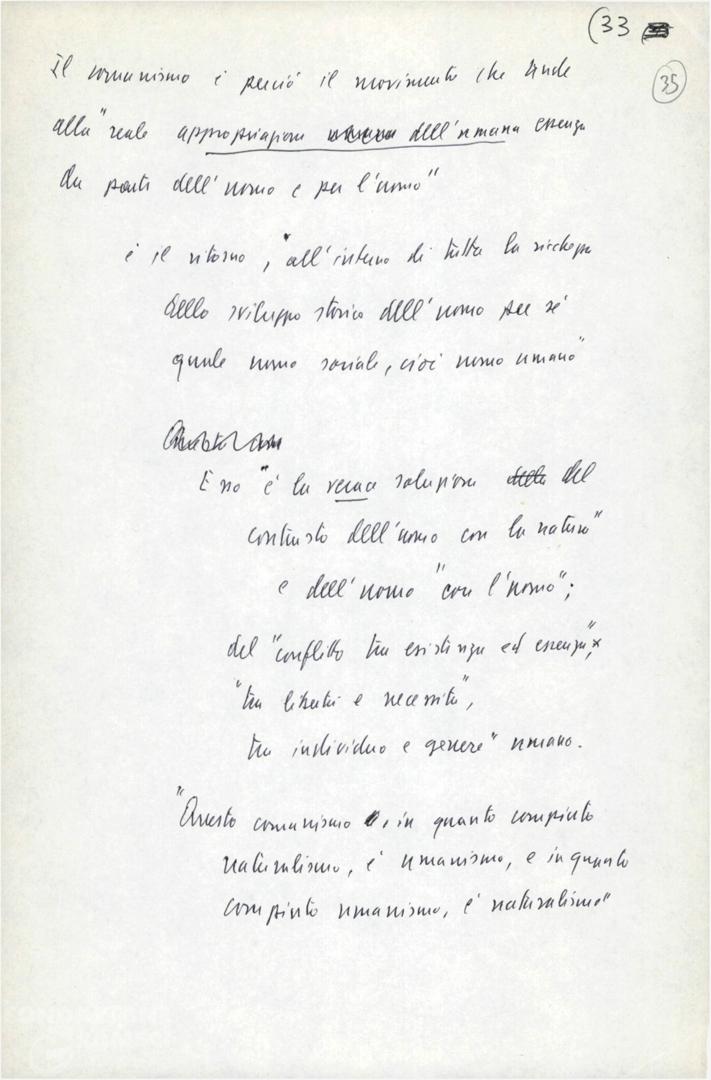 (33
35
Il comunismo è perciò il movimento che tende
alla "reale appropriazione dell'umana essenza
da parte dell'uomo e per l'uomo"
è il ritorno, "all'interno di tutta la ricchezza
dello sviluppo storico dell'uomo per sé
quale uomo sociale, cioè uomo umano"
Esso "è la verace soluzione del
contrasto dell'uomo con la natura"
e dell'uomo "con l'uomo";
del "conflitto tra esistenza ed essenza",
"tra libertà e necessità",
tra individuo e genere" umano.
"Questo comunismo, in quanto compiuto
naturalismo, è umanismo, e in quanto
compiuto umanismo, è naturalismo"